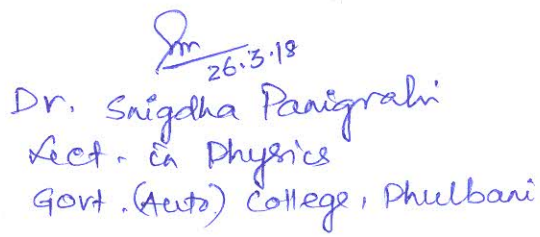 26.3.18
Dr. Snigdha Panigrahi
Lect. in Physics
Govt. (Auto) College, Phulbani